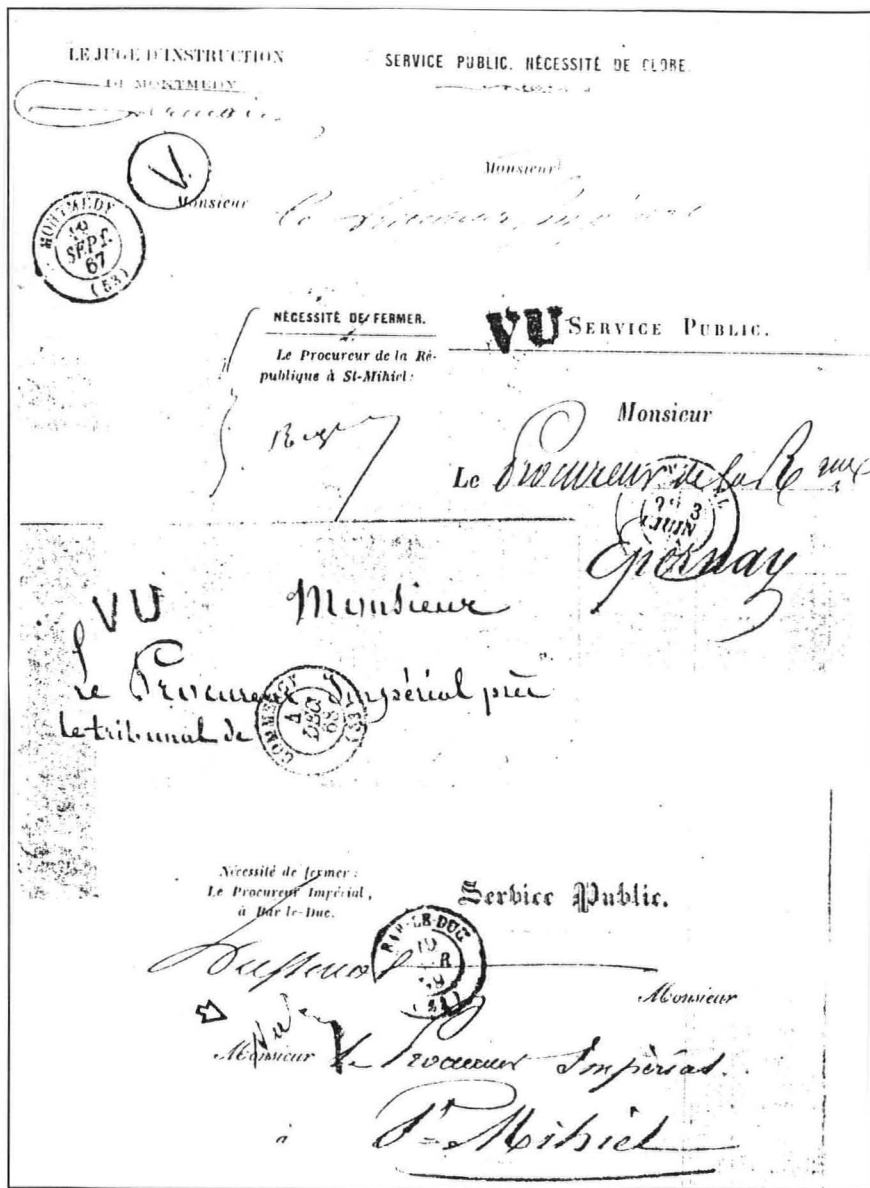 LE JUGE D'INSTRUCTION
DE MONTMEDY
SERVICE PUBLIC. NÉCESSITÉ DE CLORE.
V.
Monsieur
Monsieur
MONTMEDY
19
SEPT.
67
(53)
NÉCESSITÉ DE FERMER.
Le Procureur de la Ré-
publique à St-Mihiel:
VU SERVICE PUBLIC.
Monsieur
Le Procureur de la
JUIN
Epernay
VU Monsieur
Le Procureur Impérial près
le tribunal de
COMMERCY
4
DEC
68
Nécessité de fermer:
Le Procureur Impérial,
à Bar-le-Duc.
Service Public.
BAR-LE-DUC
Monsieur
Vu
Monsieur Le Procureur Impérial.
à St Mihiel